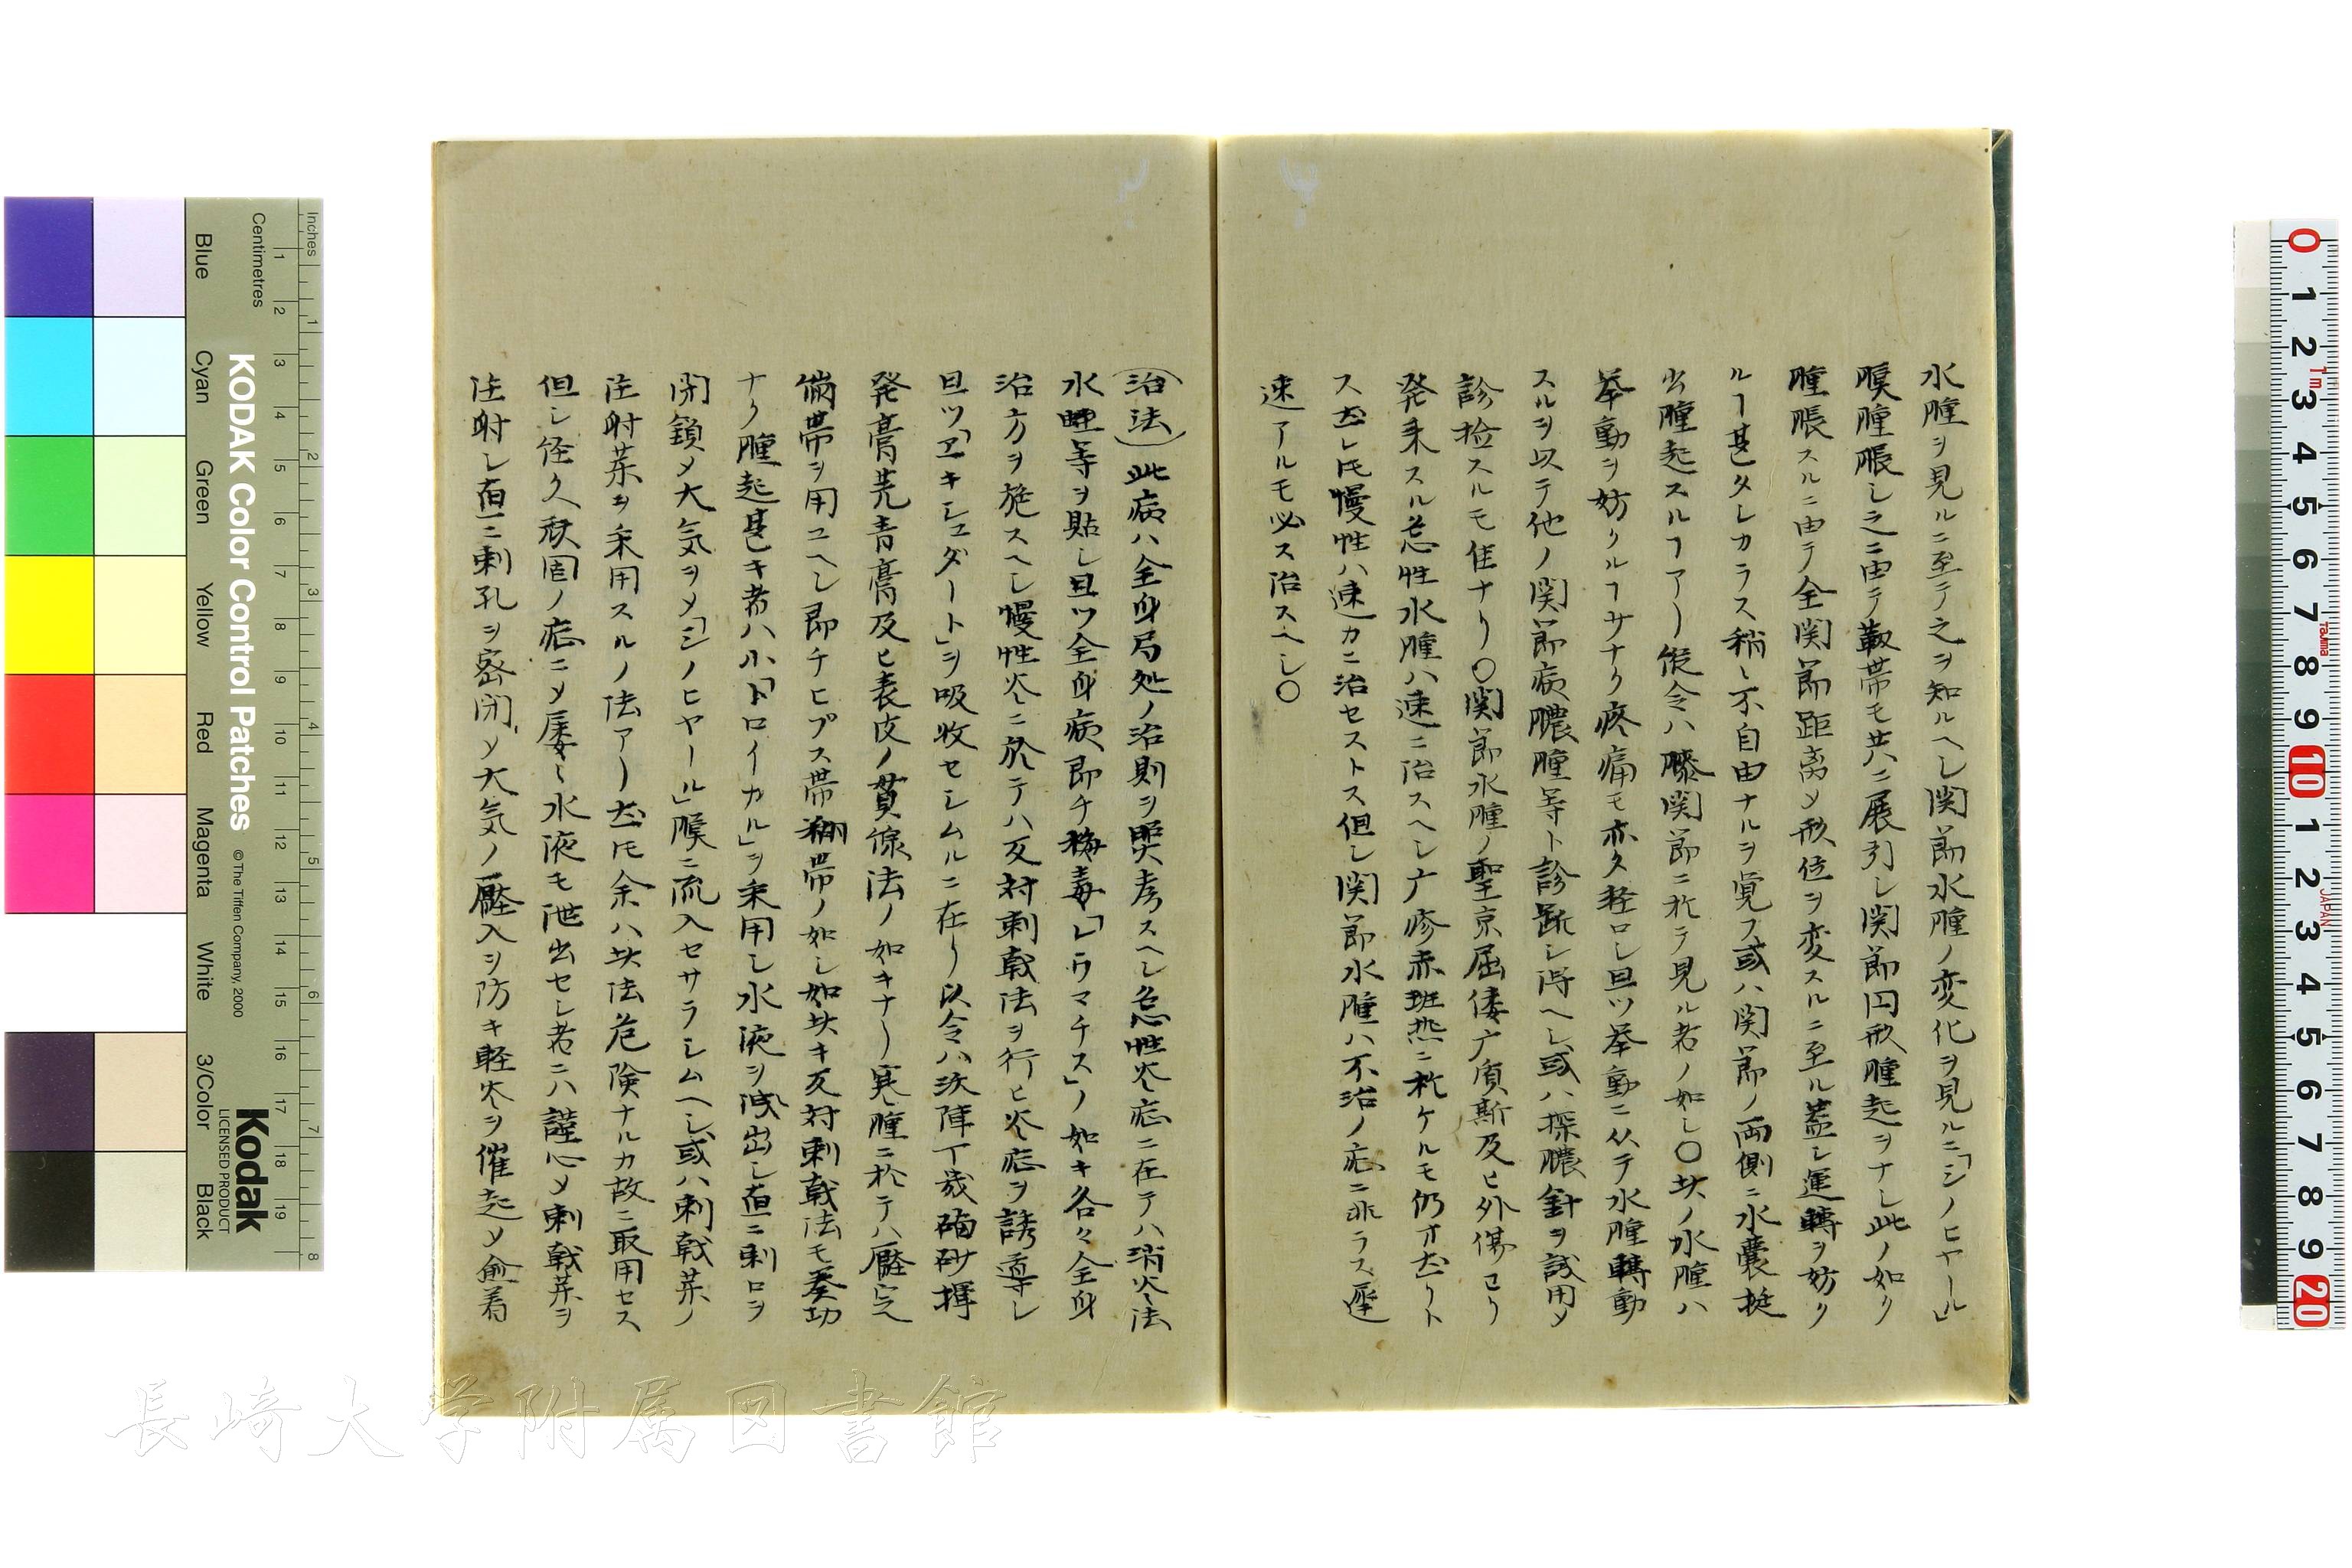 水腫ヲ見ルニ至テ之ヲ知ルヘシ関節水腫ノ変化ヲ見ルニ「シノヒヤール」
膜腫脹シ之ニ由テ靱帯モ共ニ展引シ関節円形腫起ヲナシ此ノ如ク
腫脹スルニ由テ全関節距离〆形位ヲ変スルニ至ル蓋シ運轉ヲ妨ク
ルヿ甚タシカラス稍々不自由ナルヲ覚フ或ハ関節ノ両側ニ水嚢挺
出腫起スルヿアリ假令ハ膝関節ニ於テ見ル者ノ如シ○此ノ水腫ハ
挙動ヲ妨クルヿサナク疼痛モ亦タ軽ロシ且ツ挙動ニ从テ水腫轉動
スルヲ以テ他ノ関節病膿腫等ト診断シ得ヘシ或ハ探膿針ヲ試用〆
診捡スルモ佳ナリ○関節水腫ノ聖京屈倭尸質斯及ヒ外傷ヨリ
発来スル急性水腫ハ速ニ治スヘシ尸疹赤班熱ニ於ケルモ仍オ然リト
ス然レ𪜈慢性ハ速カニ治セストス但シ関節水腫ハ不治ノ症ニ非ラス遲
速アルモ必ス治スヘシ○
(治法)此病ハ全身局処ノ治則ヲ照考スヘシ急性炎症ニ在テハ消炎法
水蛭等ヲ貼シ且ツ全身病即チ梅毒「レウマチス」ノ如キ各々全身
治方ヲ施スヘシ慢性炎ニ於テハ反対刺戟法ヲ行ヒ炎症ヲ誘導シ
且ツ「エキシュダート」ヲ吸收セシムルニ在リ以令ハ沃陣丁幾硇砂揮
発膏芫青膏及ヒ表皮ノ貫線法ノ如キナリ寒腫ニ於テハ壓定
繃帯ヲ用ユヘシ即チヒプス帯糊帯ノ如シ如此キ反対刺戟法モ奏功
ナク腫起甚シキ者ハ小「トロイカル」ヲ釆用シ水液ヲ洩出シ直ニ刺口ヲ
閉鎖〆大気ヲ〆「シノヒヤール」膜ニ流入セサラシムヘシ或ハ刺戟薬ノ
注射薬ヲ釆用スルノ法アリ然𪜈余ハ此法危険ナルカ故ニ取用セス
但シ経久頑固ノ症ニ〆屡々水液モ泄出セシ者ニハ謹心〆刺戟薬ヲ
注射シ直ニ刺孔ヲ密閉〆大気ノ壓入ヲ防キ軽炎ヲ催起〆愈着
Inches
Centimetres
Blue
Cyan
Green
Yellow
Red
Magenta
White
3/Color
Black
KODAK Color Control Patches
© The Tiffen Company, 2000
Kodak
LICENSED PRODUCT
長崎大学附属図書館